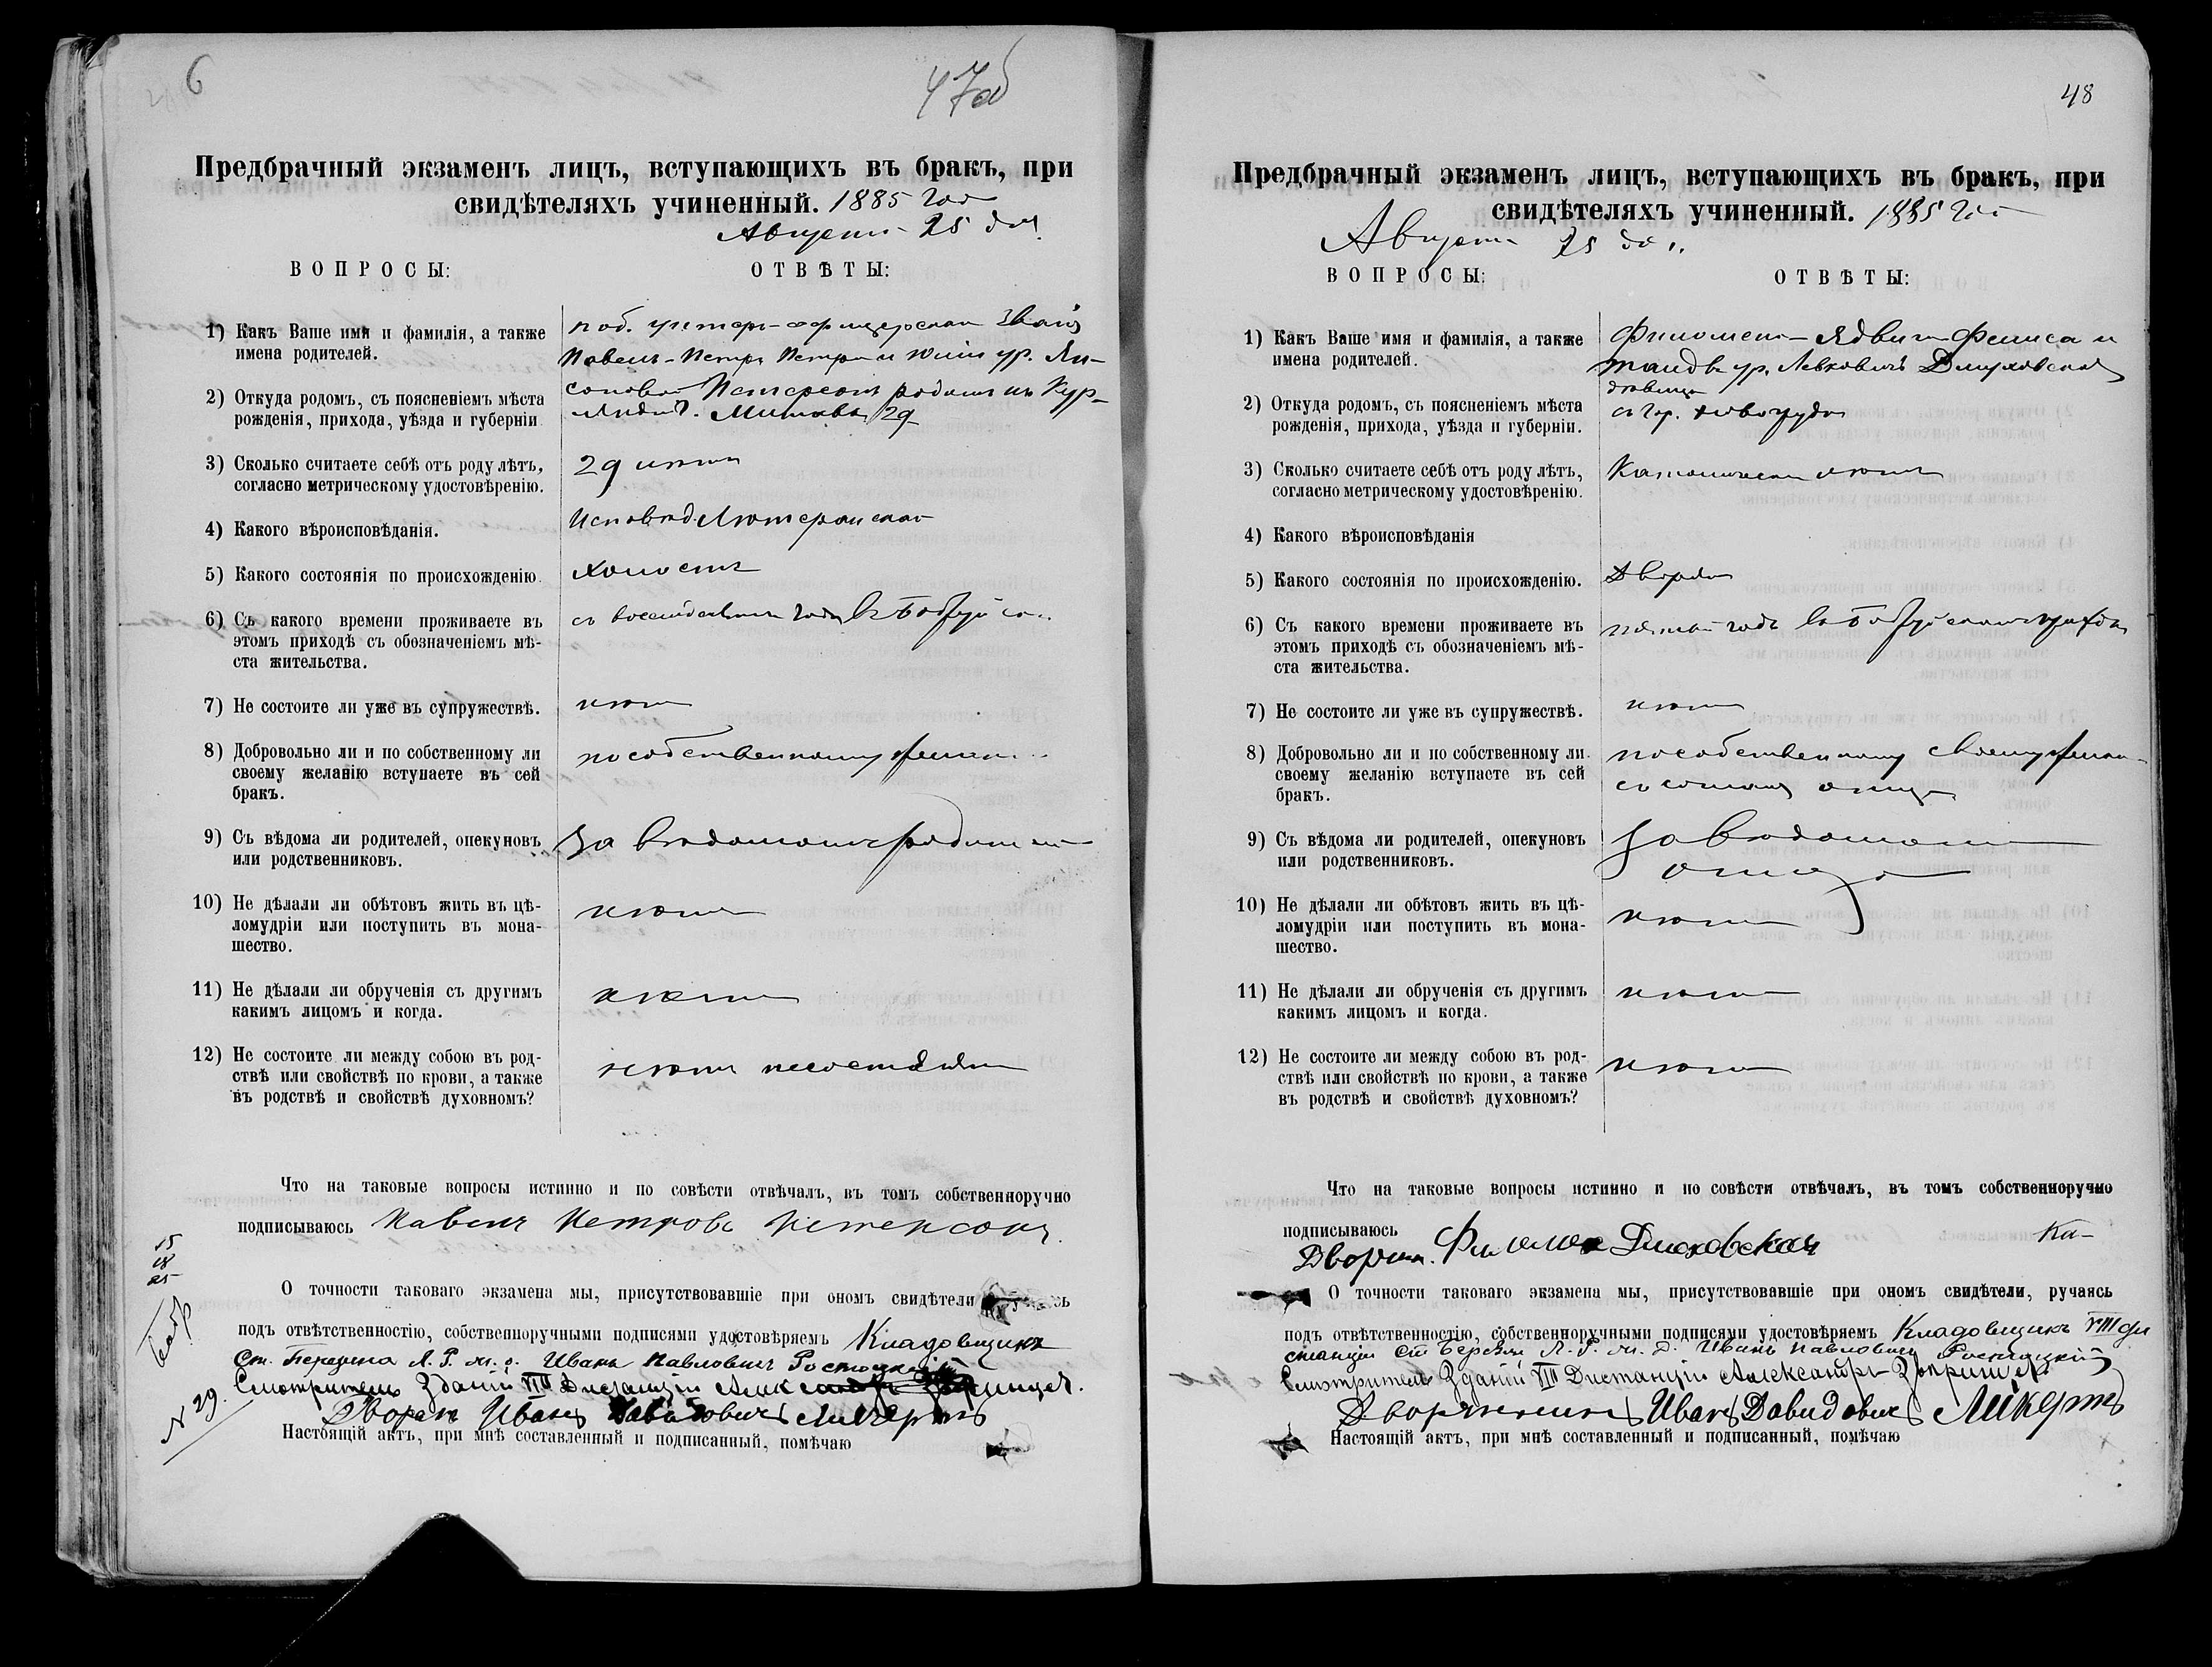 6
47об
Предбрачный экзаменъ лицъ, вступающихъ въ бракъ, при
свидѣтеляхъ учиненный. 1885 года
Августа 25 дня
ВОПРОСЫ:
ОТВѢТЫ:
1) Какъ Ваше имя и фамилія, а также
имена родителей.
2) Откуда родомъ, съ поясненіемъ мѣста
рожденія, прихода, уѣзда и губерніи
3) Сколько считаете себѣ отъ роду лѣтъ,
согласно метрическому удостовѣренію.
4) Какого вѣроисповѣданія.
5) Какого состоянія по происхожденію.
6) Съ какого времени проживаете въ
этомъ приходѣ съ обозначеніемъ мѣ-
ста жительства.
7) Не состоите ли уже въ супружествѣ.
8) Добровольно ли и по собственному ли
своему желанію вступаете въ сей
бракъ.
9) Съ вѣдома ли родителей, опекуновъ
или родственниковъ.
10) Не дѣлали ли обѣтовъ жить въ цѣ-
ломудріи или поступить въ мона-
шество.
11) Не дѣлали ли обрученія съ другимъ
какимъ лицомъ и когда.
12) Не состоите ли между собою въ род-
ствѣ или свойствѣ по крови, а также
въ родствѣ и свойствѣ духовномъ?
унтеръ-офицерскаго званія
Павелъ-Петръ
Петерсонъ родился въ Кур-
Митава 29
29 лѣтъ
Исповѣд. Лютеранскаго
Холостъ
нѣтъ
по собственному желанію
За вѣдомомъ родителей
нѣтъ
нѣтъ
нѣтъ не состоимъ
Что на таковые вопросы истинно и по совѣсти отвѣчалъ, въ томъ собственноручно
подписываюсь Павелъ Петровъ Петерсонъ.
15
18
25
О точности таковаго экзамена мы, присутствовавшіе при ономъ свидѣтели
подъ отвѣтственностію, собственноручными подписями удостовѣряемъ Кладовщикъ
Ст. Березина Л. Р. ж. д. Иванъ Павловичъ Ростоцкій
Смотритель Зданій VIII Дистанціи
Дворян. Иванъ Давидовичъ
N 29.
Настоящій актъ, при мнѣ составленный и подписанный, помѣчаю
48
Предбрачный экзаменъ лицъ, вступающихъ въ бракъ, при
свидѣтеляхъ учиненный. 1885 года
Августа 25 дня
ВОПРОСЫ:
ОТВѢТЫ:
1) Какъ Ваше имя и фамилія, а также
имена родителей.
2) Откуда родомъ, съ поясненіемъ мѣста
рожденія, прихода, уѣзда и губерніи.
3) Сколько считаете себѣ отъ роду лѣтъ,
согласно метрическому удостовѣренію.
4) Какого вѣроисповѣданія
5) Какого состоянія по происхожденію.
6) Съ какого времени проживаете въ
этомъ приходѣ съ обозначеніемъ мѣ-
ста жительства.
7) Не состоите ли уже въ супружествѣ.
8) Добровольно ли и по собственному ли
своему желанію вступаете въ сей
бракъ.
9) Съ вѣдома ли родителей, опекуновъ
или родственниковъ.
10) Не дѣлали ли обѣтовъ жить въ цѣ-
ломудріи или поступить въ мона-
шество.
11) Не дѣлали ли обрученія съ другимъ
какимъ лицомъ и когда.
12) Не состоите ли между собою въ род-
ствѣ или свойствѣ по крови, а также
въ родствѣ и свойствѣ духовномъ?
Филомена Ядвига Феликса и
ур. Левковичъ Длуховская
дѣвица
нѣтъ
по собственному своему желан.
отца
За вѣдомомъ
отца
нѣтъ
нѣтъ
нѣтъ
Что на таковые вопросы истинно и по совѣсти отвѣчалъ, въ томъ собственноручно
подписываюсь
Дворян. Филомена Длуховская
О точности таковаго экзамена мы, присутствовавшіе при ономъ свидѣтели, ручаясь
подъ отвѣтственностію, собственноручными подписями удостовѣряемъ Кладовщикъ VIII ди
станціи ст Березина Л. Р. ж. д. Иванъ Павловичъ Ростоцкій
Смотритель Зданій VIII Дистанціи Александръ
Дворянинъ Иванъ Давидовичъ Ликертъ
Настоящій актъ, при мнѣ составленный и подписанный, помѣчаю